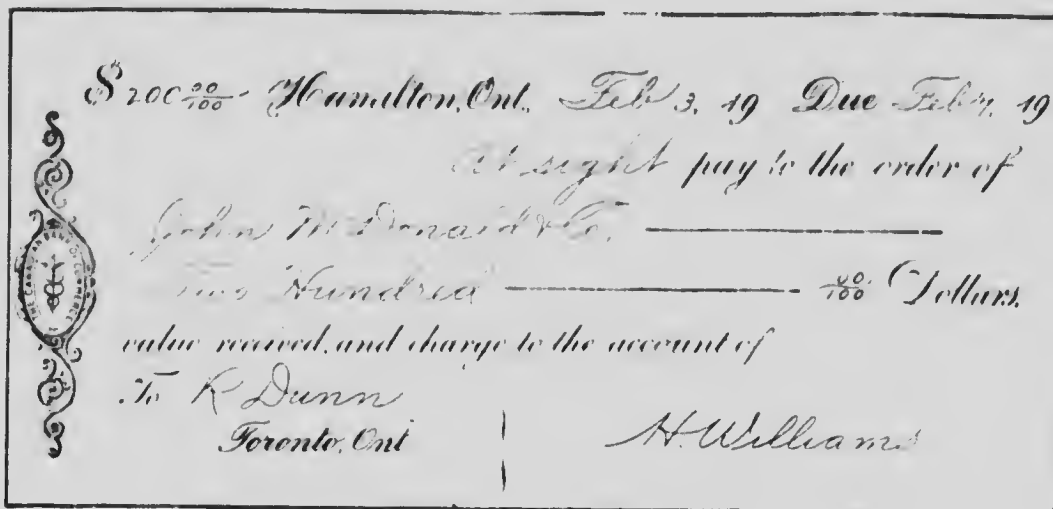 $200 00/100 Hamilton, Ont. Feb 3, 19 Due Feb 7, 19
At sight pay to the order of
John McDonald & Co.
Two Hundred 00/100 Dollars.
value received, and charge to the account of
To R Dunn
Toronto, Ont
H. Williams
THE CANADIAN BANK OF COMMERCE